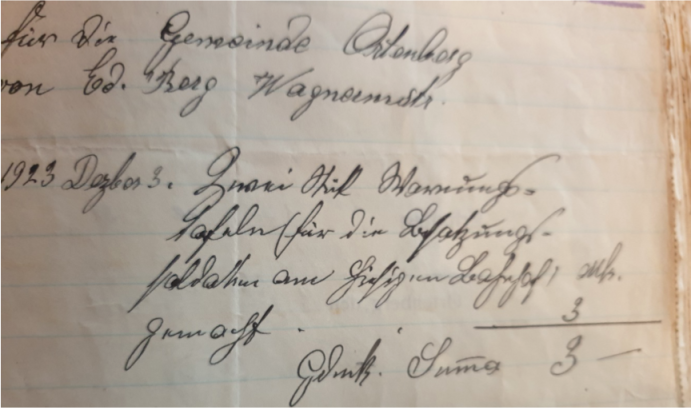 für die Gemeinde Ortenberg
von Ed. Berg Wagnermstr.
1923 Dezber 3. Zwei Stük Warnungs-
tafeln (für die Besatzungs-
soldaten am hiesigen Bahnhof) Mk.
gemacht 3
Summa 3 —